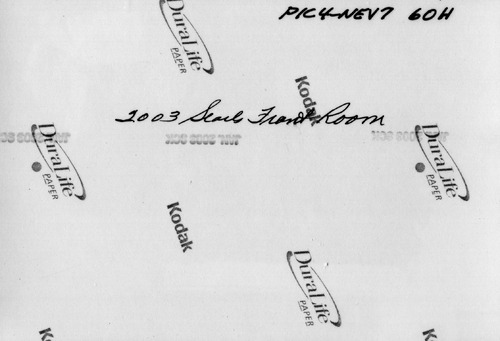 PIC4-NEV7 60H
DuraLife
PAPER
Kodak
2003 Searls Front Room
DuraLife
PAPER
DuraLife
PAPER
Kodak
DuraLife
PAPER
K
K